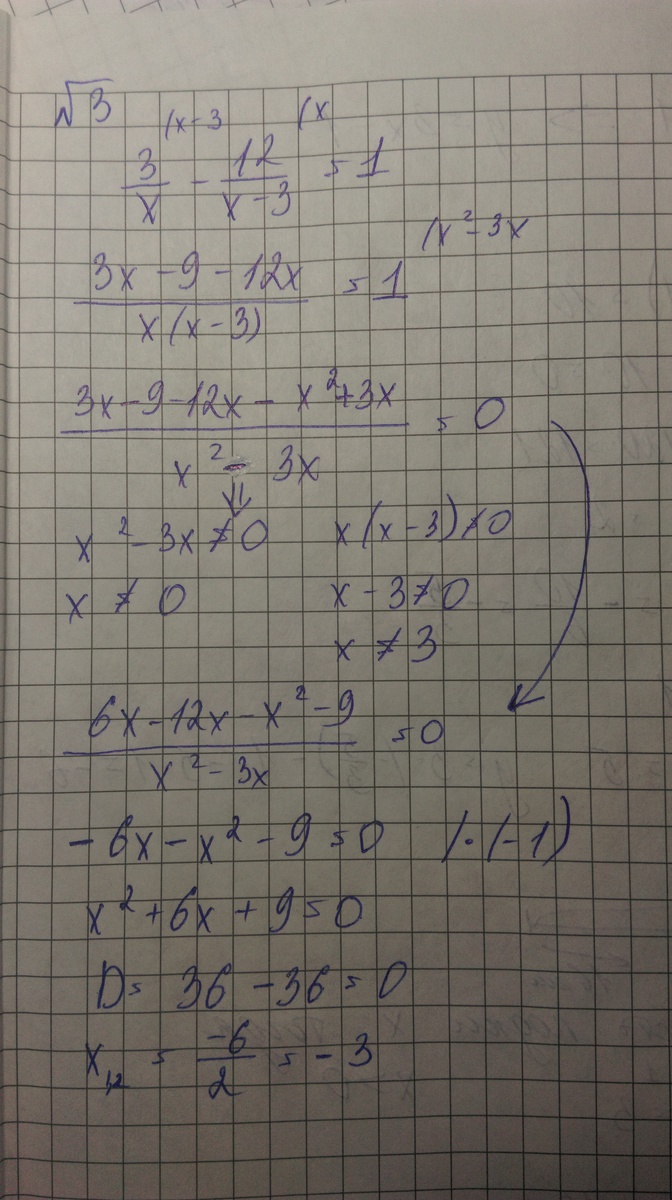 √3
(x-3 (x
3/x - 12/(x-3) = 1
(x²-3x
(3x-9-12x)/(x(x-3)) = 1
(3x-9-12x-x²+3x)/(x²-3x) = 0
⇓
x²-3x≠0 x(x-3)≠0
x ≠ 0 x-3≠0
x ≠ 3
(6x-12x-x²-9)/(x²-3x) = 0
-6x-x²-9=0 /·(-1)
x²+6x+9=0
D= 36-36=0
x₁,₂ = -6/2 = -3